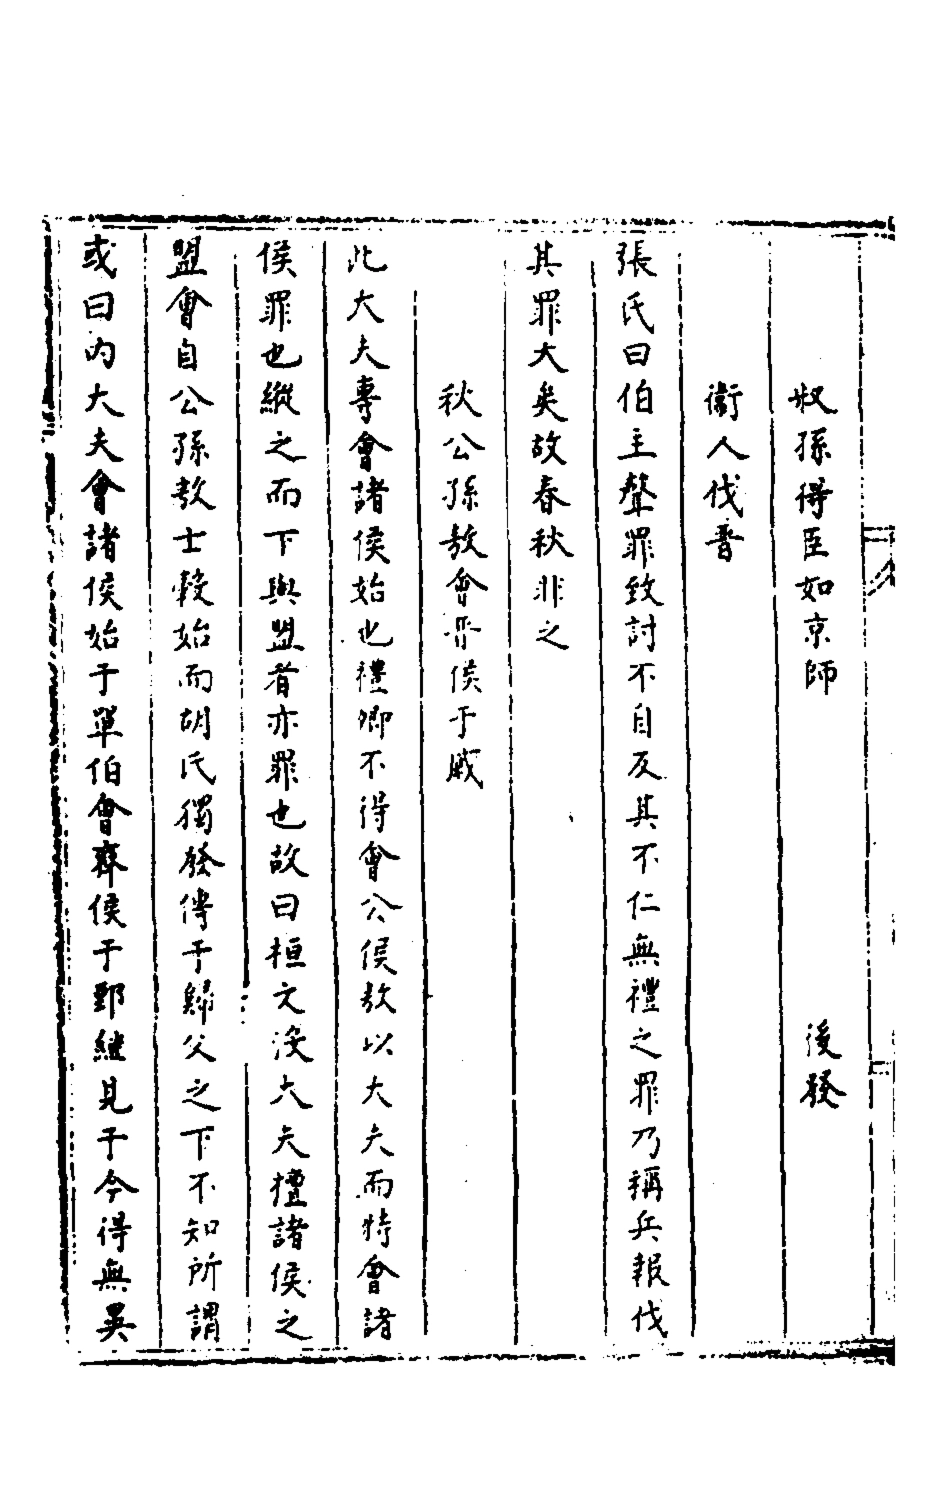 叔孫得臣如京師　後發
衞人伐晉
張氏曰伯主聲罪致討不自反其不仁無禮之罪乃稱兵報伐
其罪大矣故春秋非之
秋公孫敖會晉侯于戚
此大夫專會諸侯始也禮卿不得會公侯敖以大夫而特會諸
侯罪也縱之而下與盟者亦罪也故曰桓文沒大夫擅諸侯之
盟會自公孫敖士縠始而胡氏獨發傳于歸父之下不知所謂
或曰內大夫會諸侯始于單伯會齊侯于鄄継見于今得無異